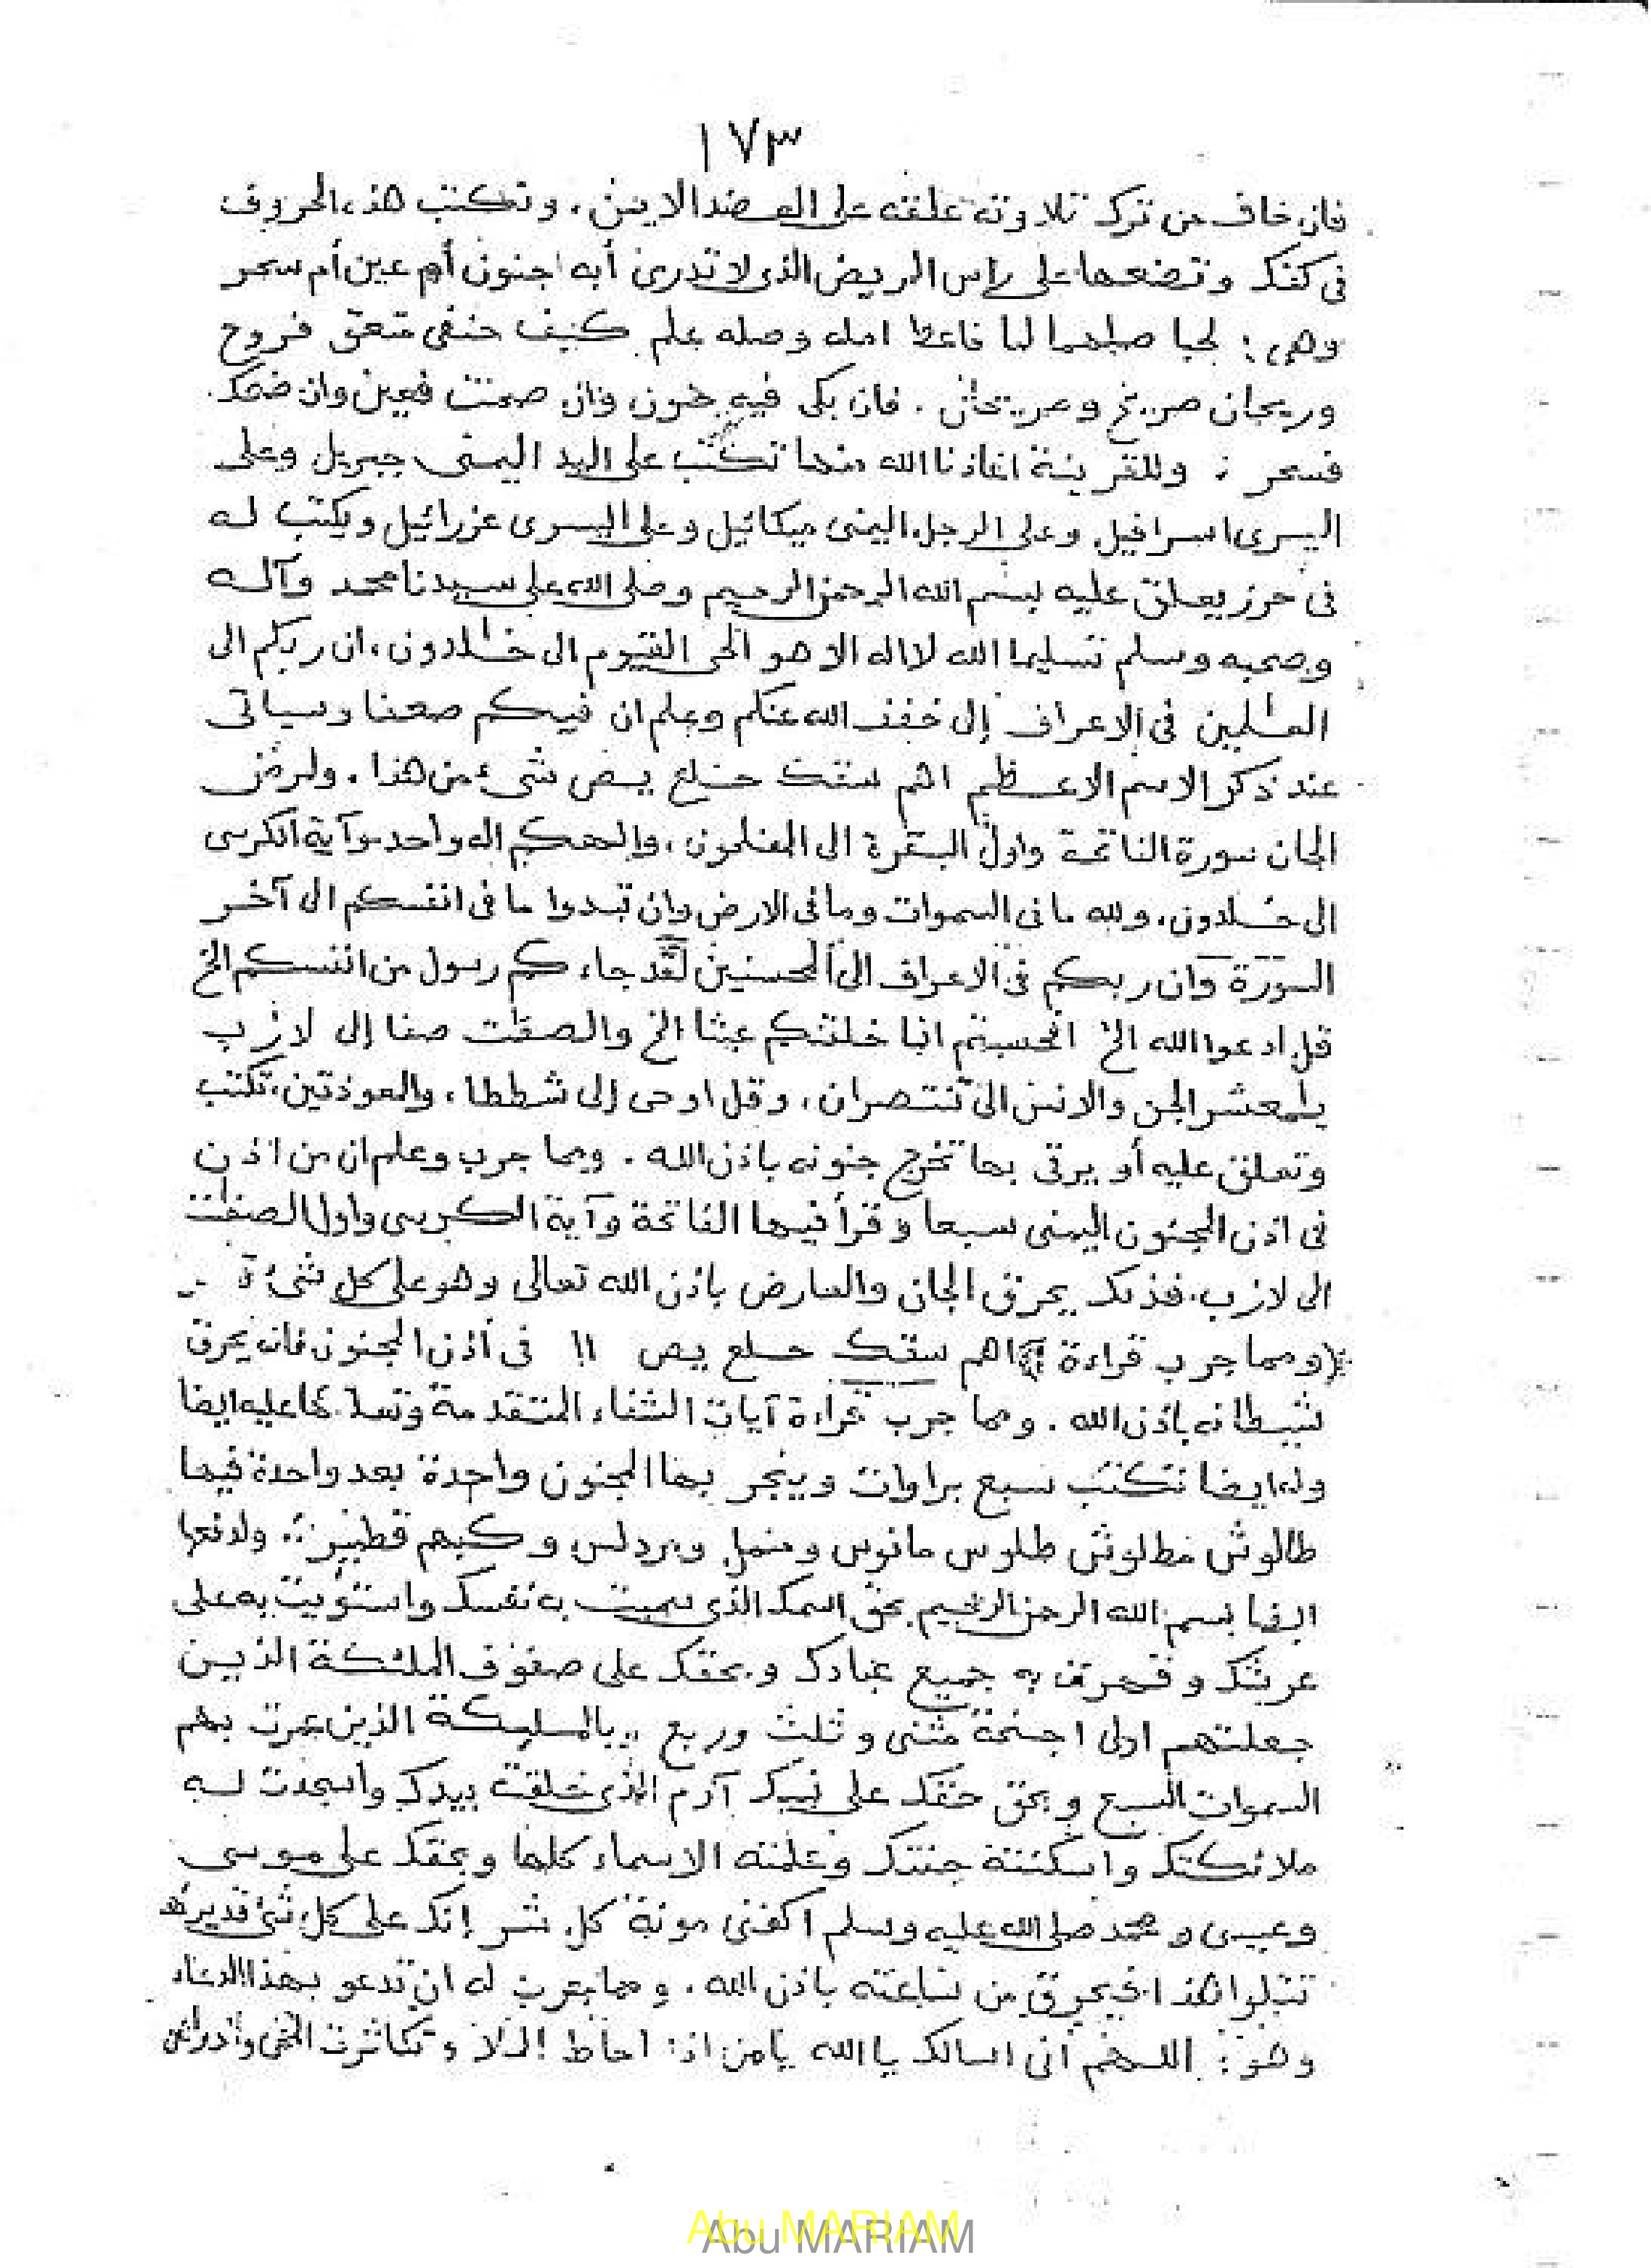 ١٧٣
فان خاف من ترك تلاوته علقه على العضد الايمن، وتكتب هذه الحروف
فى كفك وتضعها على راس المريض الذى لا تدرى أبه اجنون أم عين أم سحر
وهى: لحيا امله وصله علم كنيف حنفى فروح
وريحان صريخ وصريخان. فان بكى فيه جنون وان صمت فعين وان ضحك
فسحر: وللقرينة اعاذنا الله منها تكتب على اليد اليمنى جبريل وعلى
اليسرى اسرافيل وعلى الرجل اليمنى ميكائيل وعلى اليسرى عزرائيل ويكتب له
فى حرز يعلق عليه بسم الله الرحمن الرحيم وصلى الله على سيدنا محمد وآله
وصحبه وسلم تسليما الله لا اله الا هو الحى القيوم الى خلدون، ان ربكم الى
العلمين فى الاعراف إلى خفف الله عنكم وعلم ان فيكم ضعفا وسياتى
عند ذكر الاسم الاعظم اهم سقك حلع يص شىء من هذا. ولرمن
الجان سورة الفاتحة واول البقرة الى المفلحون، وإلهكم اله واحد وآية الكرسى
الى خلدون، ولله ما فى السموات وما فى الارض وان تبدوا ما فى انفسكم الى آخر
السورة وان ربكم فى الاعراف الى المحسنين لقد جاءكم رسول من انفسكم الخ
قل ادعوا الله الخ افحسبتم انما خلقنكم عبثا الخ والصفت صفا إلى لازب
يلمعشر الجن والانس الى تنتصران، وقل اوحى إلى شططا، والمعوذتين، تكتب
وتعلق عليه أو يرقى بها تخرج جنونه باذن الله. ومما جرب وعلم ان من اذن
فى اذن المجنون اليمنى سبعا وقرأ فيها الفاتحة وآية الكرسى واول الصفت
الى لازب. فذلك يحرق الجان والعارض باذن الله تعالى وهو على كل شىء
ومما جرب قراءة اهم سقك حلع يص ١١ فى أذن المجنون فانه يحرق
شيطانه باذن الله. ومما جرب قراءة آيات الشفاء المتقدمة عليه ايضا
وله ايضا تكتب سبع براوات ويبخر بها المجنون واحدة بعد واحدة فيها
طالوش مطالوش طلوس مانوس ومنمل وبردلس وكلبهم قطمير: ولدفعها
ايضا بسم الله الرحمن الرحيم بحق اسمك الذى سميت به نفسك واستويت به على
عرشك وقهرت به جميع عبادك وبحقك على صفوف الملئكة الذين
جعلتهم اولى اجنحة مثنى وثلث وربع بالمليكة الذين عمرت بهم
السموات السبع وبحق حقك على نبيك آدم الذى خلقت بيدك واسجدت له
ملائكتك واسكنته جنتك وعلمته الاسماء كلها وبحقك على موسى
وعيسى ومحمد صلى الله عليه وسلم اكفنى مونة كل شر إنك على كل شىء قدير
تتلوا هذا يحرق من ساعته باذن الله. ومما جرب له ان تدعو بهذا الدعاء
وهو: اللهم انى اسالك يا الله يا من اذا احاط البلا وتكاثرت
Abu MARIAM